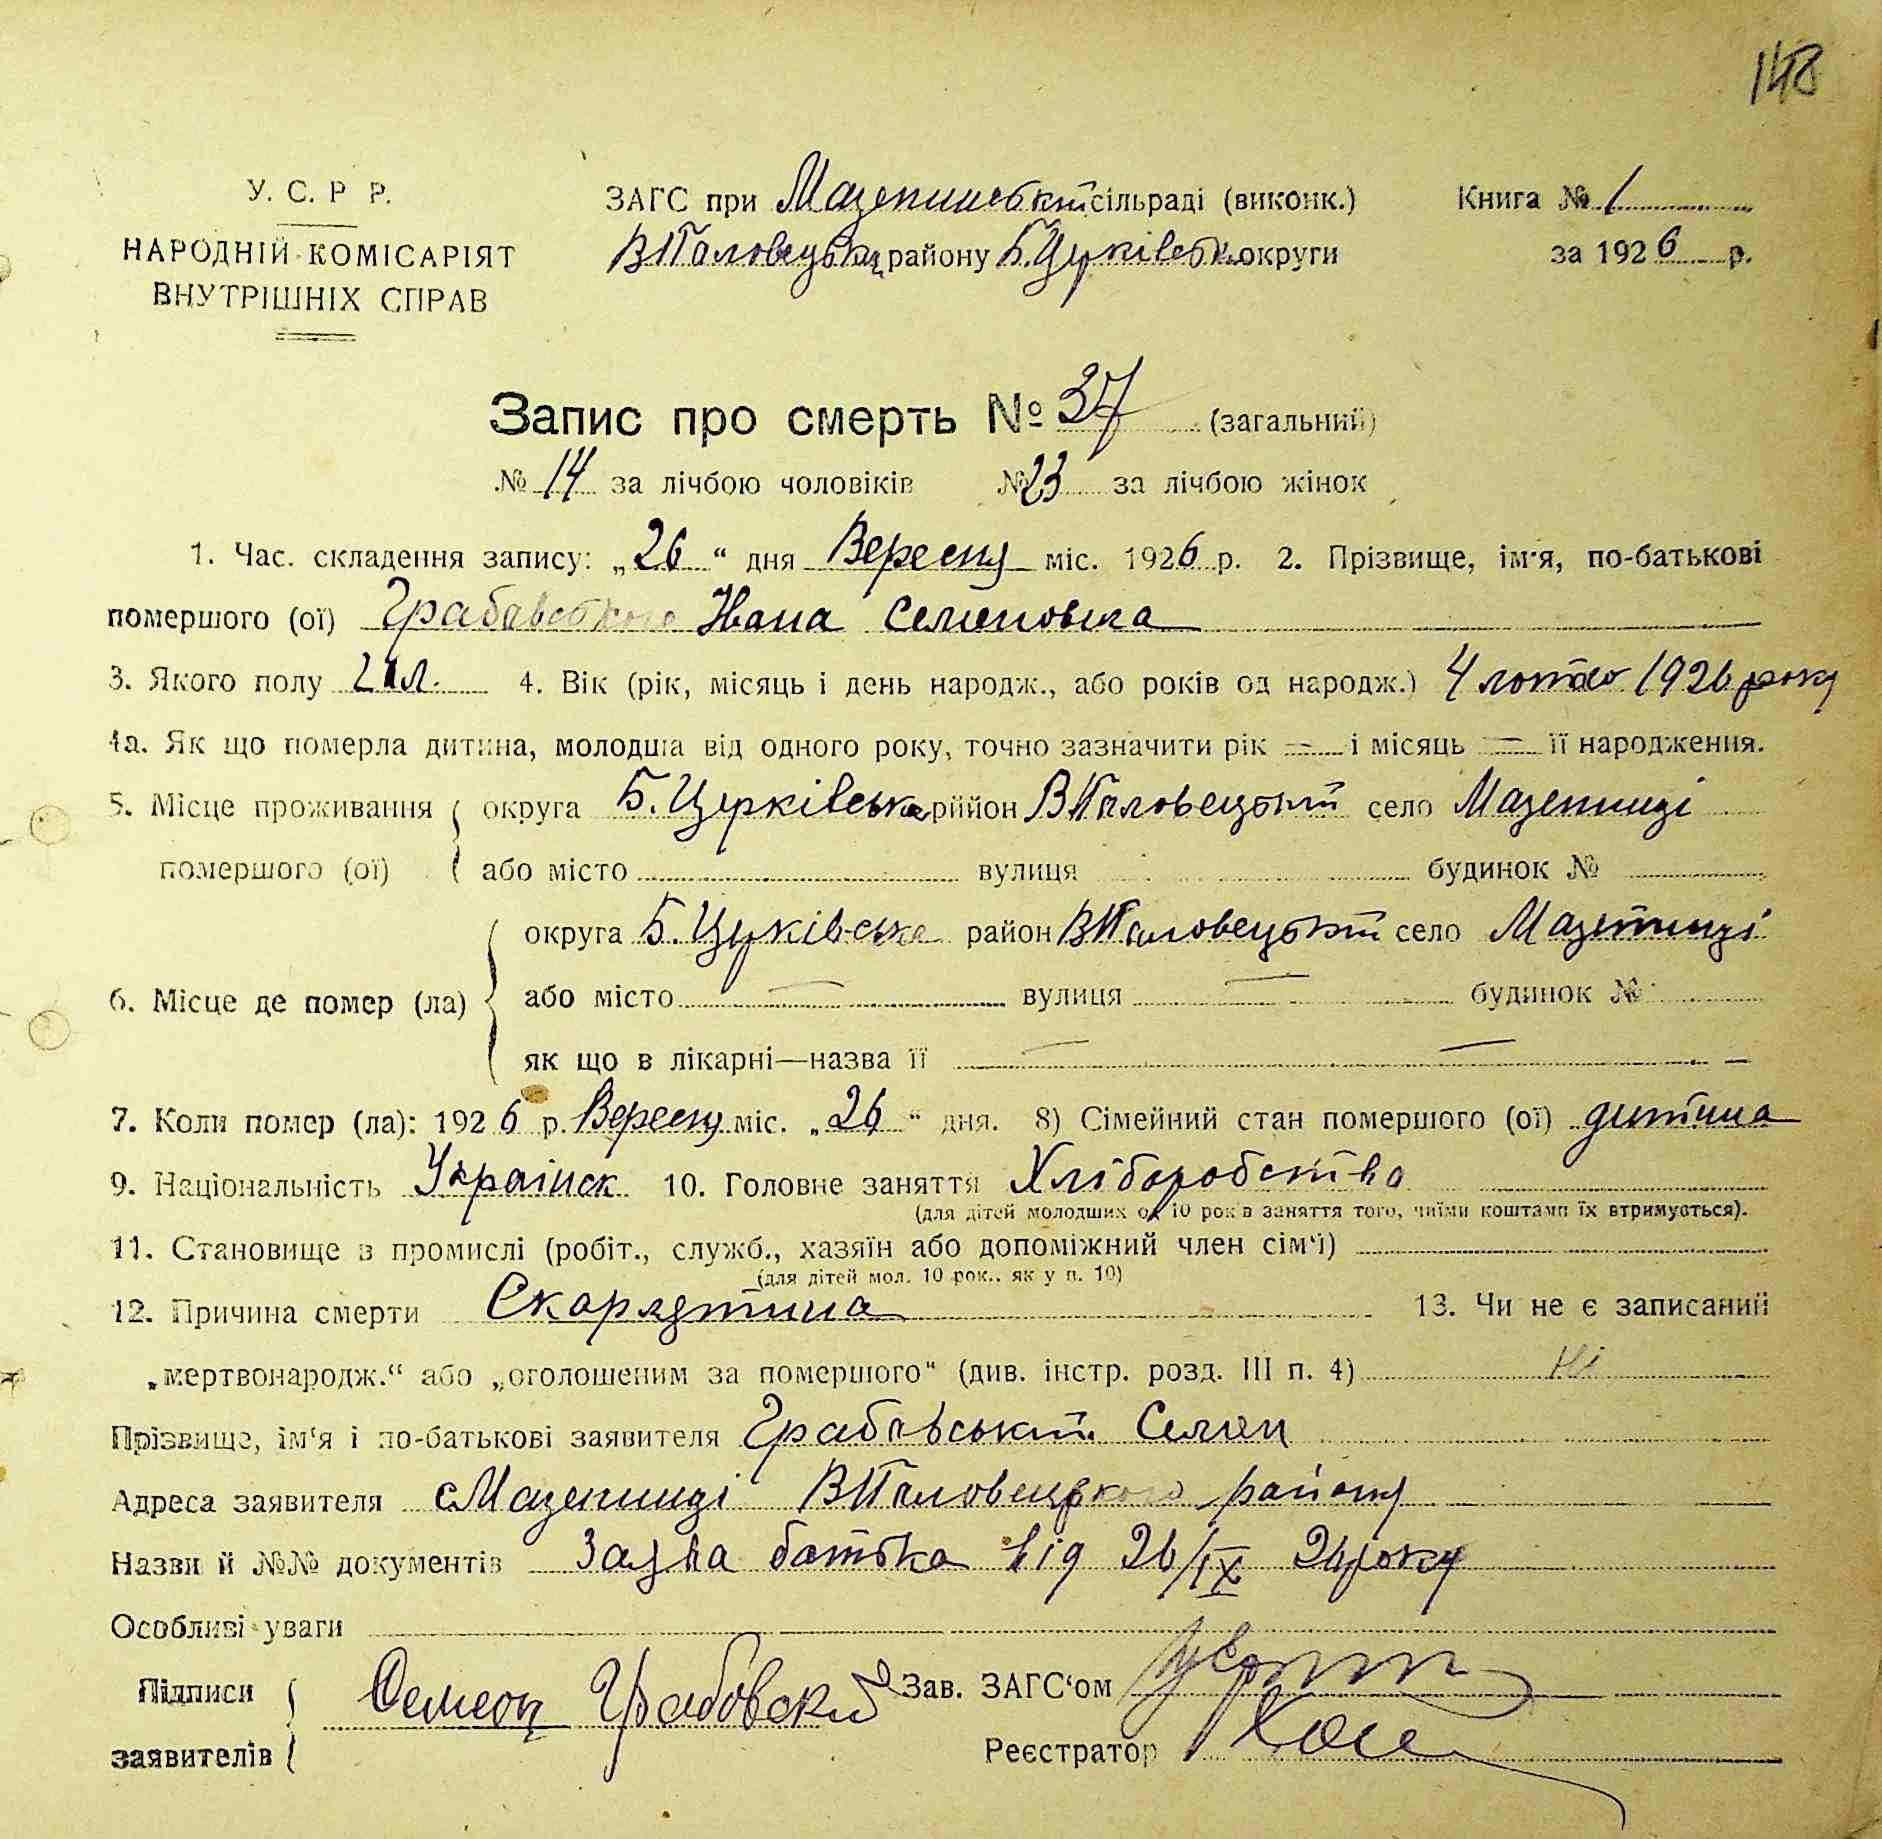 148
У. С. Р Р.
НАРОДНІЙ КОМІСАРІЯТ
ВНУТРІШНІХ СПРАВ
ЗАГС при Мазепинській сільраді (виконк.)
В Половецьк району Б. Церківськ округи
Книга № 1
за 1926 р.
Запис про смерть № 37 (загальний)
№ 14 за лічбою чоловіків № 23 за лічбою жінок
1. Час. складення запису: „26“ дня Вересня міс. 1926 р. 2. Прізвище, ім'я, по-батькові
помершого (ої) Грабовського Івана Семеновича
3. Якого полу чол. 4. Вік (рік, місяць і день народж., або років од народж.) 4 лютого 1926 року
4а. Як що померла дитина, молодша від одного року, точно зазначити рік — і місяць — її народження.
5. Місце проживання округа Б. Церківська рійон В Половецький село Мазепинці
помершого (ої) або місто вулиця будинок №
округа Б. Церківська район В Половецький село Мазепинці
6. Місце де помер (ла) або місто — вулиця — будинок №
як що в лікарні—назва її — —
7. Коли помер (ла): 1926 р. Вересня міс. „26“ дня. 8) Сімейний стан помершого (ої) дитина
9. Національність Українск 10. Головне заняття Хліборобство
(для дітей молодших од 10 років заняття того, чиїми коштами їх втримується).
11. Становище в промислі (робіт., служб., хазяїн або допоміжний член сім'ї)
(для дітей мол. 10 рок., як у п. 10)
12. Причина смерти Скорлятина 13. Чи не є записаний
„мертвонародж.“ або „оголошеним за помершого“ (див. інстр. розд. III п. 4) Ні
Прізвище, ім'я і по-батькові заявителя Грабовський Семен
Адреса заявителя с Мазепинці В Половецького району
Назви й №№ документів Заява батька від 26/IX 26 року
Особливі уваги
Підписи заявителів Семеон Грабовский Зав. ЗАГС'ом
Реєстратор